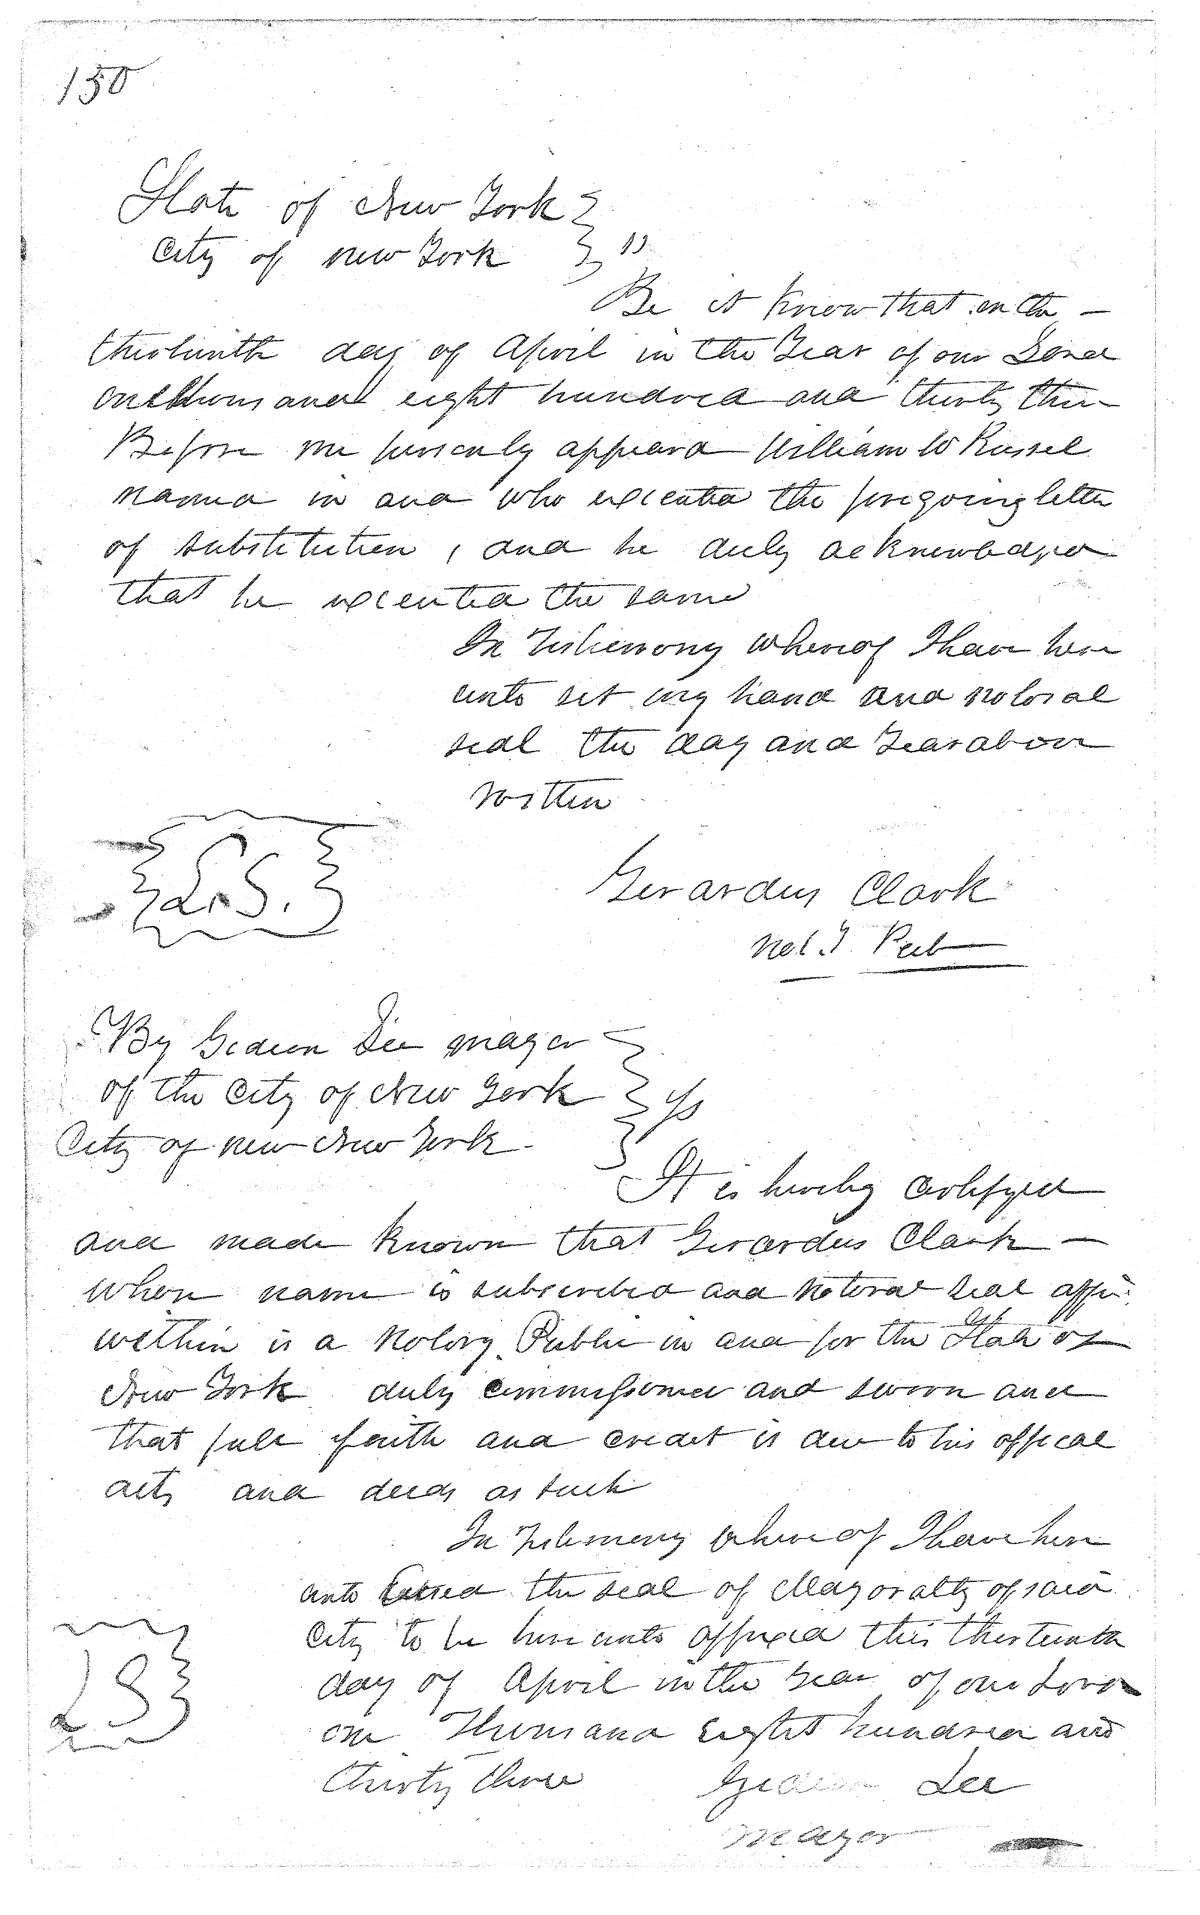 150
State of New York
City of new York } ss
Be it know that on the
thirteenth day of April in the Year of our Lord
one thousand eight hundred and thirty three
Before me personly appeard William W Russel
named in and who executed the foregoing letter
of substitution, and he duly acknowledged
that he executed the same
In Testimony whereof I have here
unto set my hand and notoral
seal the day and Year above
written
L.S.
Gerardus Clark
Not. Y. Pub
By Gideon Lee mayor
of the City of New York } ss
City of new New York
It is hereby certifyed
and made known that Gerardus Clark
whose name is subscribed and noteral seal affix
within is a Notory Public in and for the State of
New York duly commissioned and sworn and
that full faith and credit is due to his offical
acts and deeds as such
In Testimony whereof I have here
unto the seal of Mayoralty of said
City to be hereunto affixed this thirteenth
day of April in the Year of our Lord
one Thousand Eight hundred and
thirty three Gideon Lee
mayor
LS